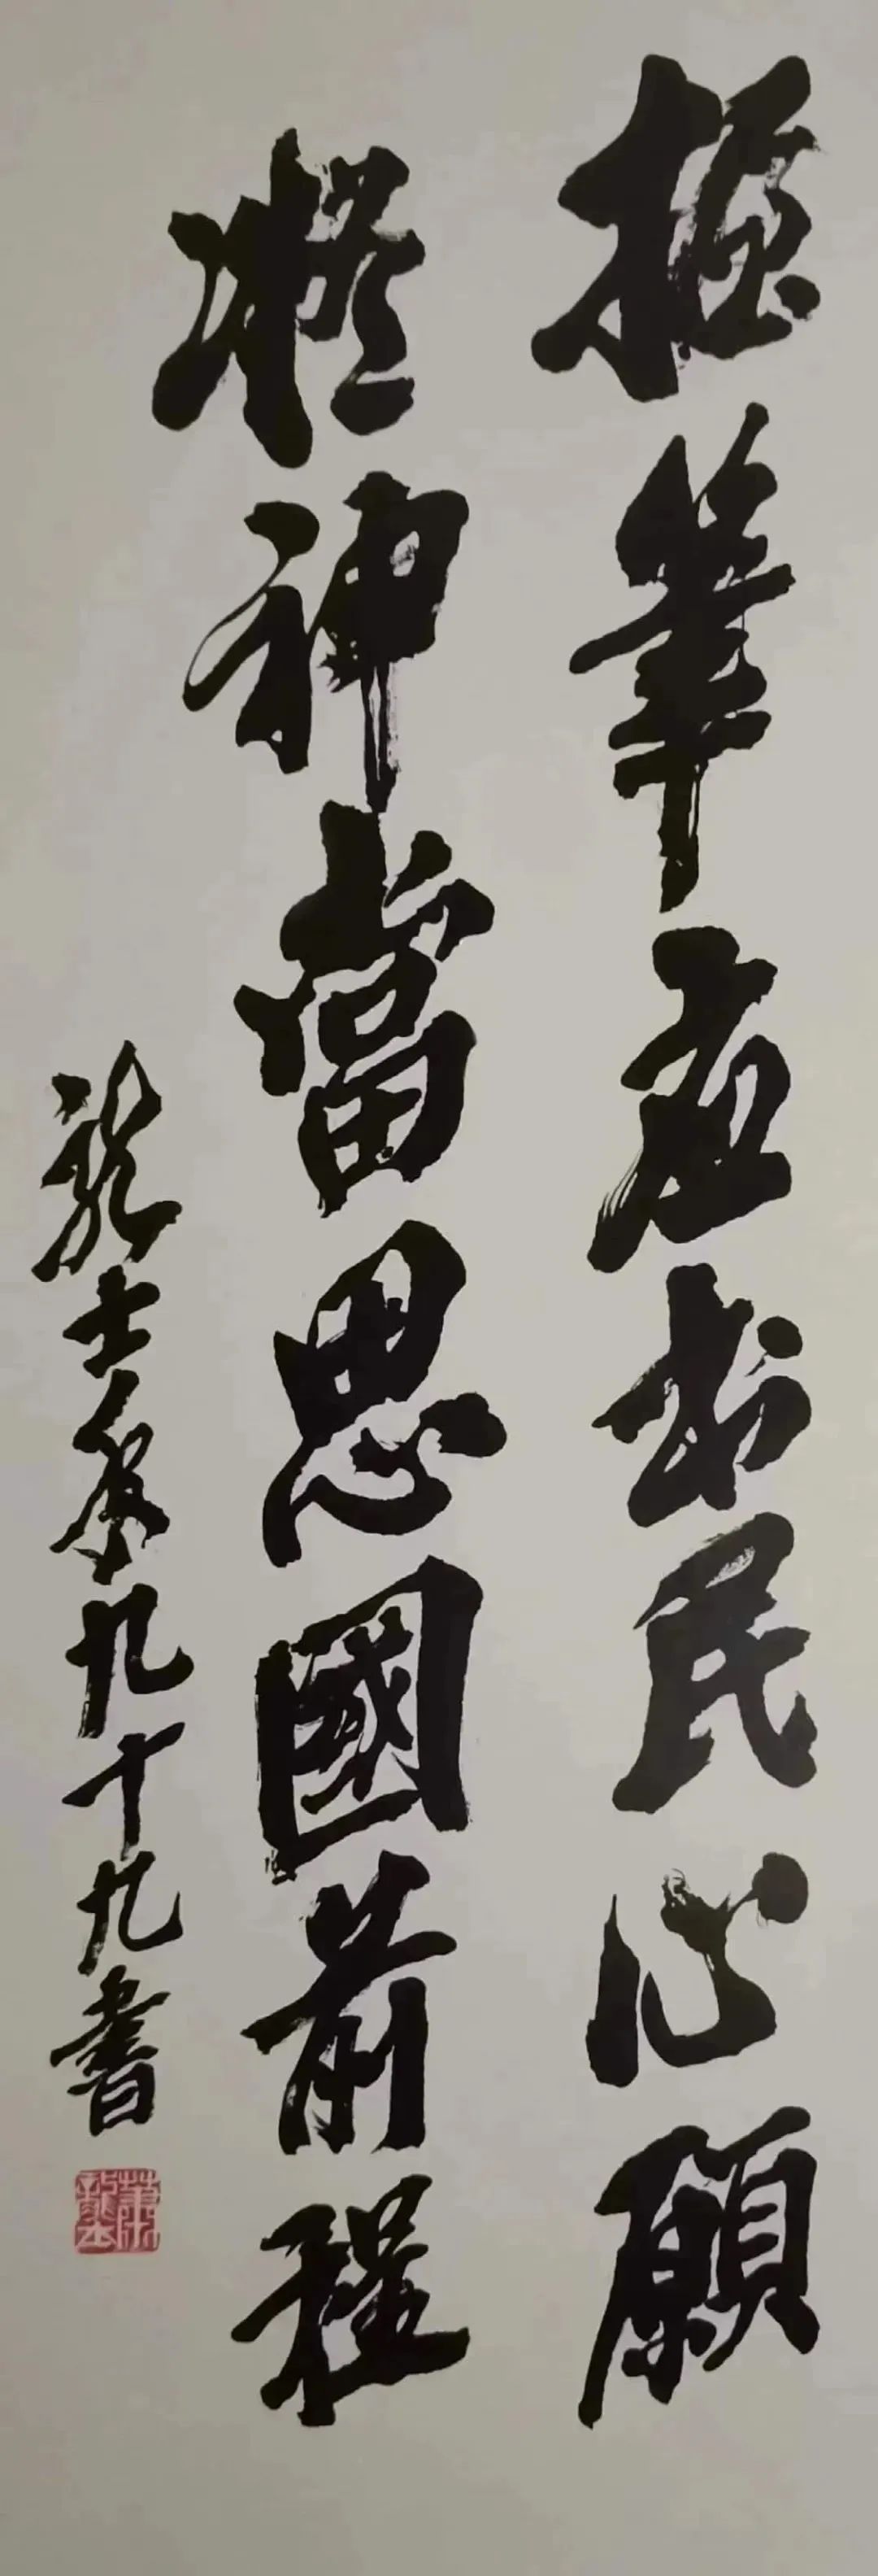 握筆應书民心願
凝神當思國前程
龍士年九十九書